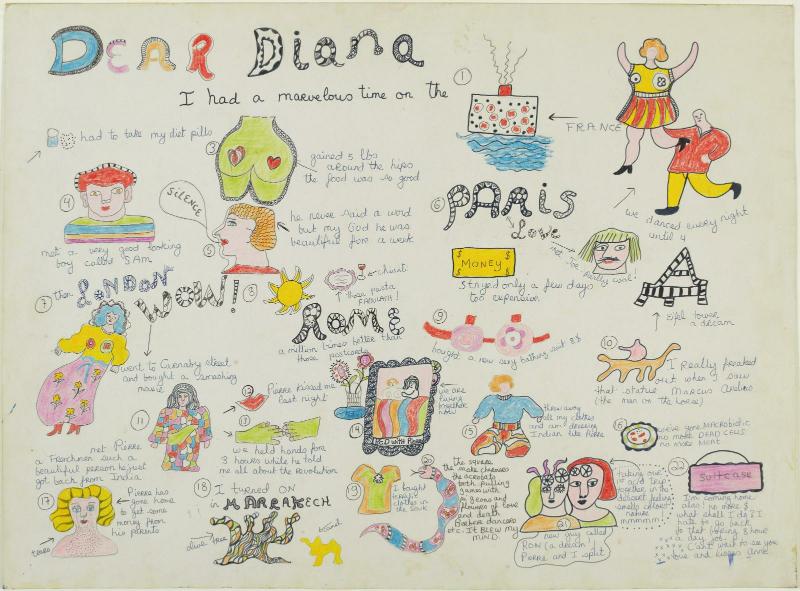 DEAR Diana
I had a marvelous time on the
1
FRANCE
had to take my diet pills
3
gained 5 lbs
around the hips
the food was so good
we danced every night
until 4
4
met a very good looking
boy called SAM
SILENCE
5
he never said a word
but my God he was
beautiful for a week
6
PARIS
Love
$ MONEY $
Stayed only a few days
too expensive
A
Eifel tower
a dream
7
then LONDON
WOW!
went to Carnaby street
and bought a smashing
maxie
8
chianti
those pasta
FABULOUS!
ROME
a million times better than
those postcards
9
bought a new sexy bathing suit 8$
10
I Really freaked
out when I saw
that statue MARCUS Orelius
(the man on the horse)
11
met Pierre
a Frenchman such a
beautiful person he just
got back from India
12
Pierre kissed me
last night
13
we held hands for
3 hours while he told
me all about the Revolution
14
BED with Pierre
we are
living
together
now
15
threw away
all my clothes
and am dressing
Indian like Pierre
16
we've gone MACROBIOTIC
no more DEAD CELLS
no more MEAT
17
Pierre has
gone home
to get some
money from
his parents
tears
18
I turned ON
in MARRAKECH
olive tree
camel
19
I bought
clothes in
the Souk
the square
the snake charmers
the acrobats
both putting
games with
and death
Barbara dancers
etc. IT BLEW my
MIND
taking one
nature
mmmmm
21
new guy called
RON (a dream)
Pierre and I split
22
Suitcase
I'm coming home
alas! no more $
what shall I do? I
hate to go back
to that boring 8 hour
a day job
Can't wait to see you
love and kisses Anne